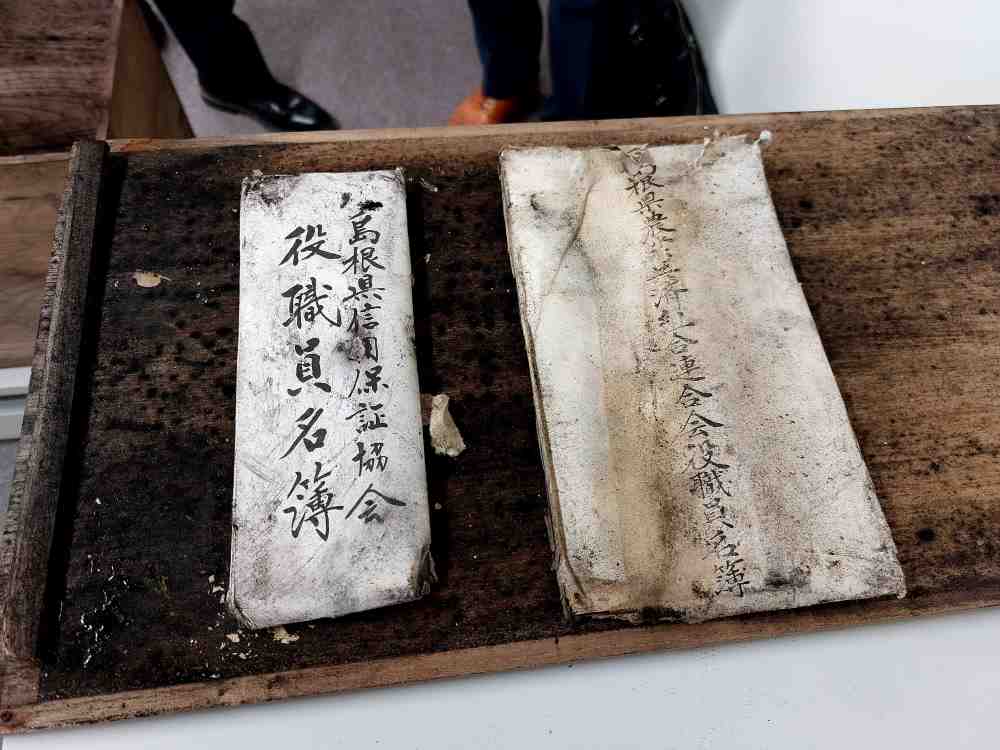 島根県信用保証協会
役職員名簿
島根県農業共済組合連合会役職員名簿